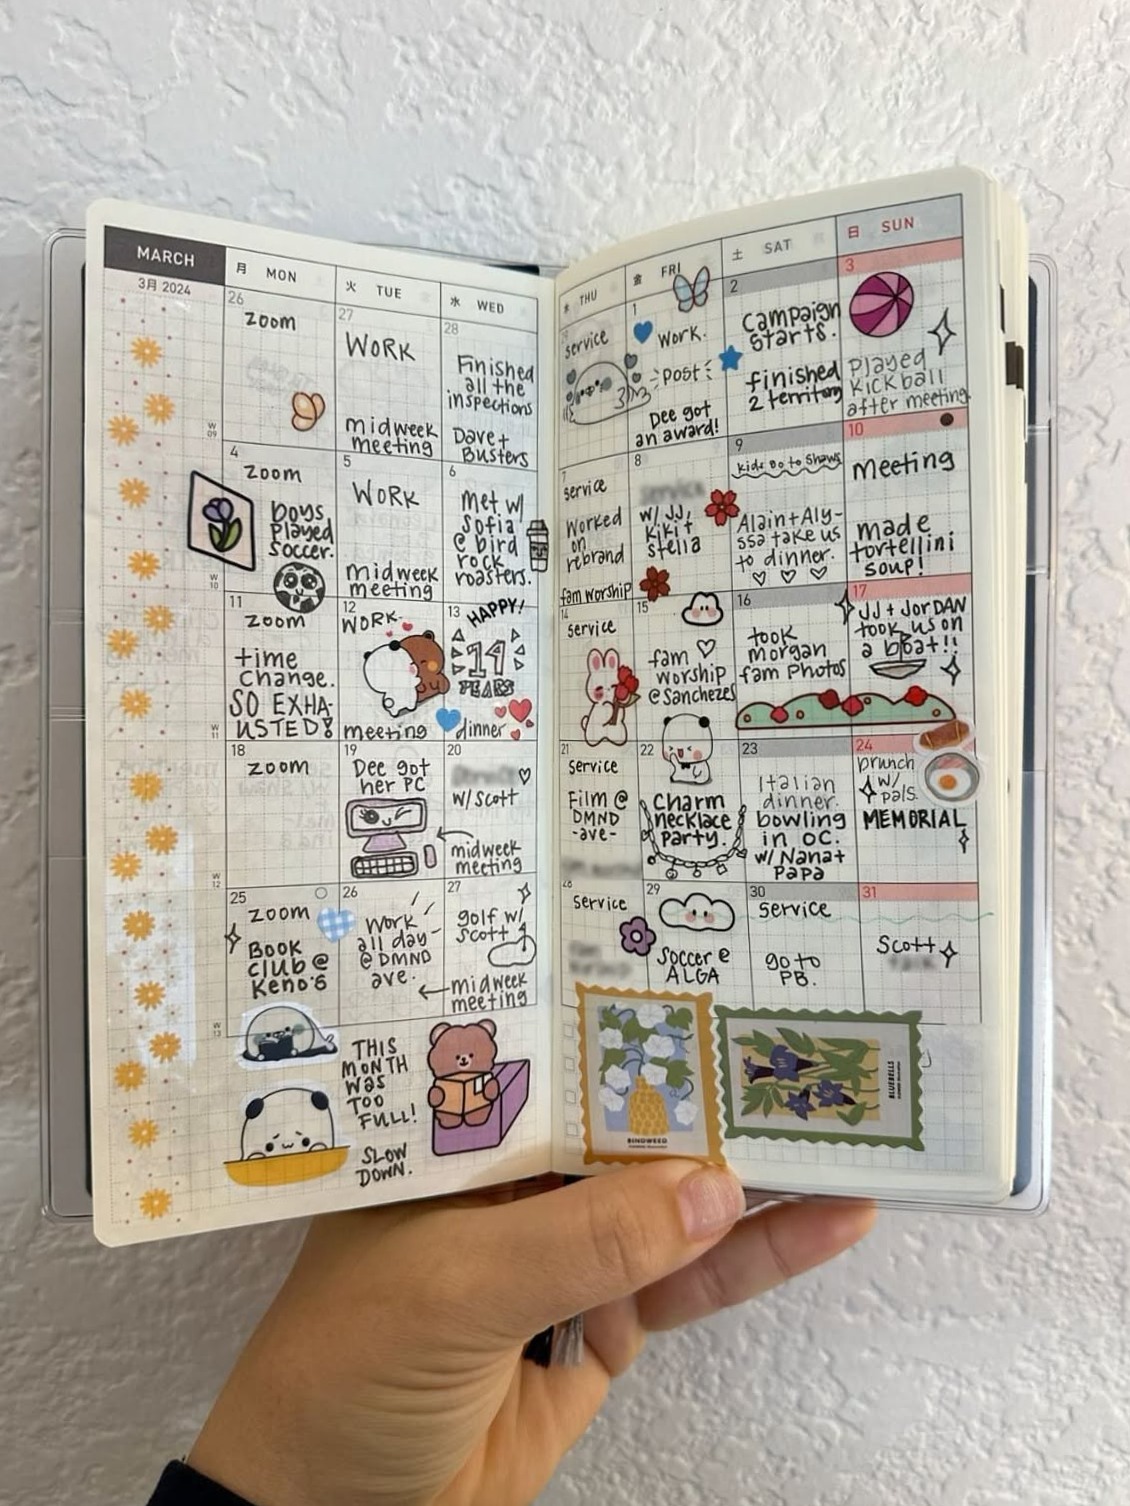 MARCH
3月 2024
月 MON
火 TUE
水 WED
木 THU
金 FRI
土 SAT
日 SUN
26
zoom
27
WORK
midweek
meeting
28
Finished
all the
inspections
Dave +
Busters
service
1
work.
Post
Dee got
an award!
2
campaign
starts.
finished
2 territory
3
Played
kickball
after meeting
W
09
4
zoom
boys
played
soccer.
5
WORK
midweek
meeting
6
met w/
Sofia
@ bird
rock
roasters.
7
service
worked
on
rebrand
fam worship
8
w/ JJ,
Kiki +
Stella
9
kids go to Shaws
Alain + Aly-
ssa take us
to dinner.
10
meeting
made
tortellini
soup!
W
10
11
zoom
time
change.
SO EXHA-
USTED!
12
WORK
meeting
13
HAPPY!
19
YEARS
dinner
14
service
15
fam
worship
@ Sanchezes
16
took
morgan
fam Photos
17
JJ + JORDAN
took us on
a boat!!
W
11
18
zoom
19
Dee got
her PC
20
w/ Scott
midweek
meeting
21
service
Film @
DMND
-ave-
22
Charm
necklace
party.
23
Italian
dinner.
bowling
in OC.
w/ Nana +
Papa
24
brunch
w/
pals.
MEMORIAL
W
12
25
zoom
Book
club @
Keno's
26
Work
all day
@ DMND
ave.
27
golf w/
Scott
midweek
meeting
28
service
29
Soccer @
ALGA
30
service
go to
PB.
31
Scott
W
13
THIS
MONTH
was
TOO
FULL!
SLOW
DOWN.
BINDWEED
BLUEBELLS